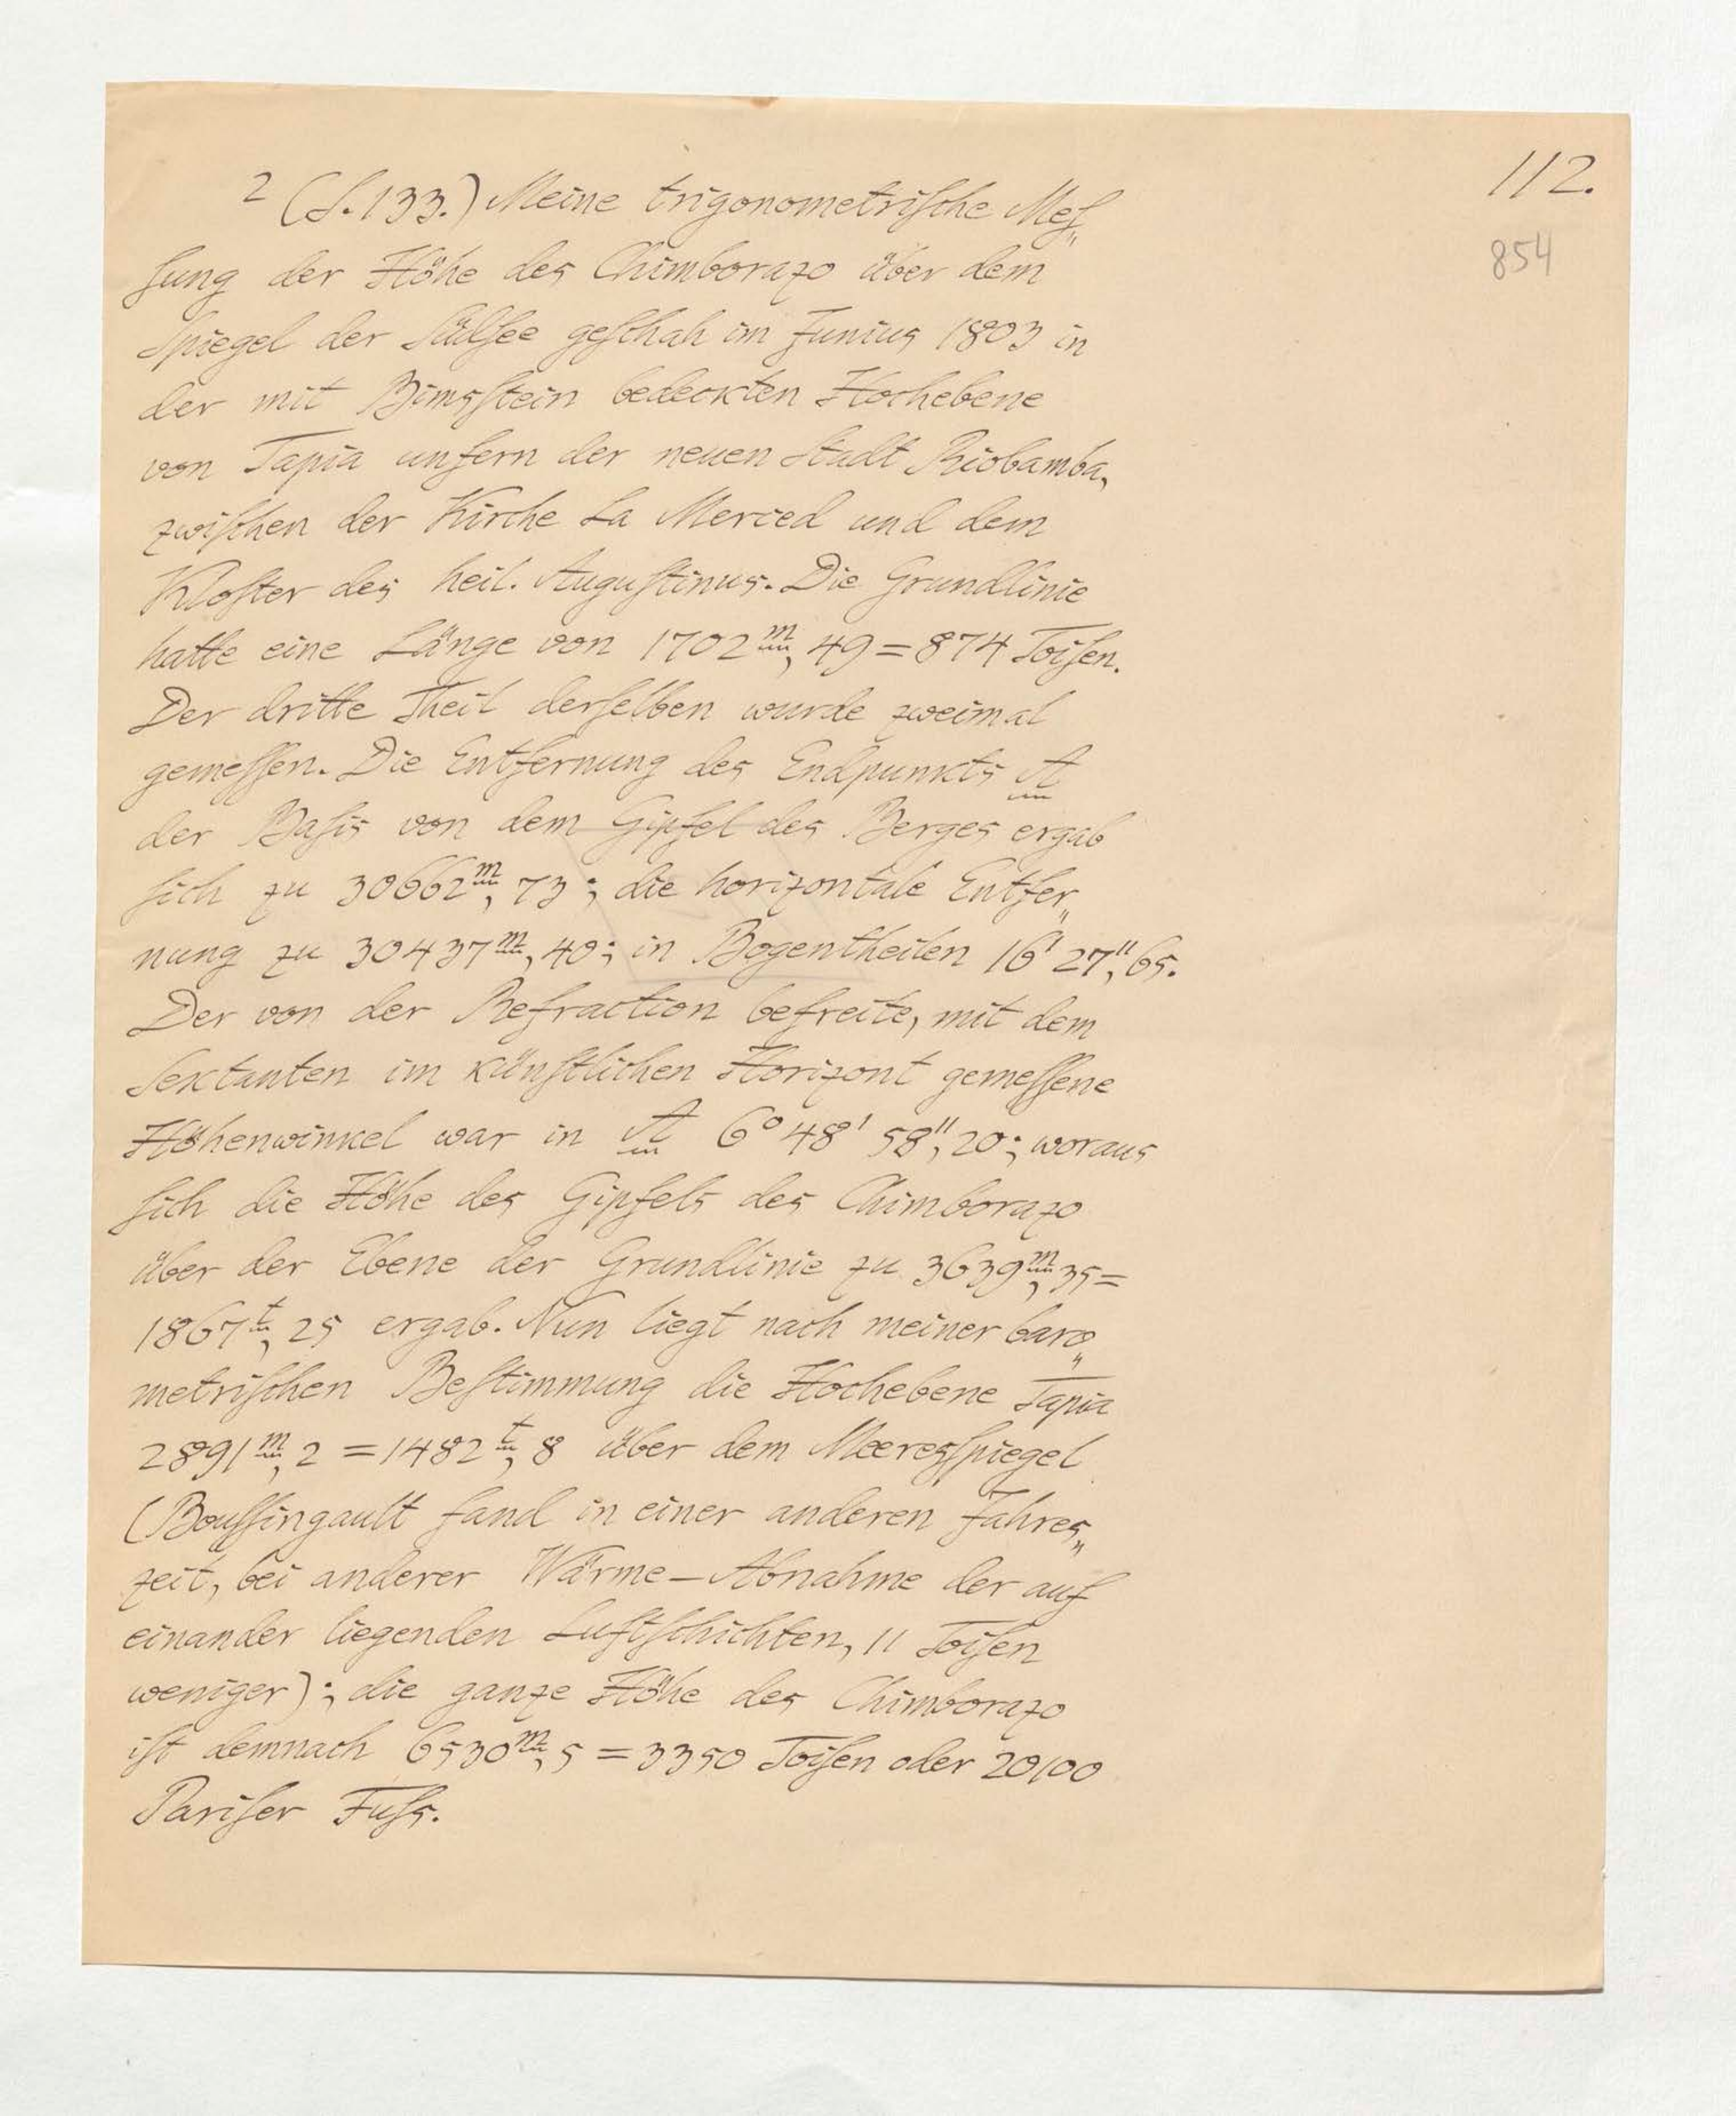 112.
854
2 (S. 133.) Meine trigonometrische Mes„
sung der Höhe des Chimborazo über dem
Spiegel der Südsee geschah im Junius 1803 in
der mit Bimsstein bedeckten Hochebene
von Tapia unfern der neuen Stadt Riobamba,
zwischen der Kirche La Merced und dem
Kloster des heil. Augustinus. Die Grundlinie
hatte eine Länge von 1702m,49 = 874 Toisen.
Der dritte Theil derselben wurde zweimal
gemessen. Die Entfernung des Endpunkts A
der Basis von dem Gipfel des Berges ergab
sich zu 30662m,73; die horizontale Entfer„
nung zu 30437m,40; in Bogentheilen 16' 27",65.
Der von der Refraction befreite, mit dem
Sextanten im künstlichen Horizont gemessene
Höhenwinkel war in A 6° 48' 58",20; woraus
sich die Höhe des Gipfels des Chimborazo
über der Ebene der Grundlinie zu 3639m,35 =
1867t,25 ergab. Nun liegt nach meiner baro„
metrischen Bestimmung die Hochebene Tapia
2891m,2 = 1482t,8 über dem Meeresspiegel
(Boussingault fand in einer anderen Jahres„
zeit, bei anderer Wärme-Abnahme der auf
einander liegenden Luftschichten, 11 Toisen
weniger); die ganze Höhe des Chimborazo
ist demnach 6530m,5 = 3350 Toisen oder 20100
Pariser Fuss.